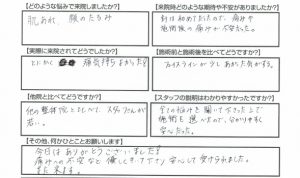 【どんなお悩みで来院しましたか?】
肌あれ、顔のたるみ
【来院時どのような期待や不安がありましたか?】
針は初めてだったので、痛みや
施術後の痛みが不安だった。
【実際に来院されてどうでしたか?】
とにかく 痛気持ちよかった!
【施術前と施術後を比べてどうですか?】
フェイスラインが少しあがった気がする。
【他院と比べてどうですか?】
他の整体院とくらべて、スタッフさんが
若い。
【スタッフの説明はわかりやすかったですか?】
悩みを聞いて下さった上で
施術を選べたので、分かりやすく
安心だった。
【その他、何かひとことお願いします】
今日はありがとうございました!
痛みへの不安など優しくして下さり安心して受けられました。
また来ます。